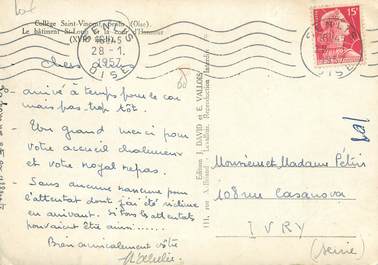 Collège Saint-Vincent, Senlis (Oise).
Le bâtiment St-Louis et la cour d'Honneur
28-1
1957
OISE
15F
Chers
arrivé à temps pour le car
mais pas trop tôt.
Un grand merci pour
votre accueil chaleureux
et votre royal repas.
Sans aucune rancune pour
l'attentat dont j'ai été victime
en arrivant. Si tous les attentats
pouvaient être ainsi......
Bien amicalement vôtre
Editions J. DAVID et E. VALLOIS
111, rue Levallois. Reproduction interdite
Monsieur et Madame Pétin
108 rue Casanova
IVRY
(Seine)